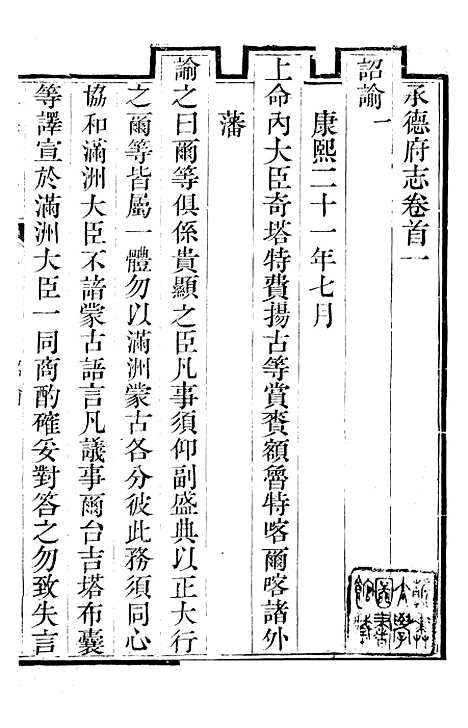 承德府志卷首一
詔諭一
康熙二十一年七月
上命內大臣奇塔特費揚古等賞賚額魯特喀爾喀諸外
藩
諭之曰爾等俱係貴顯之臣凡事須仰副盛典以正大行
之爾等皆屬一體勿以滿洲蒙古各分彼此務須同心
協和滿洲大臣不諳蒙古語言凡議事爾台吉塔布囊
等譯宣於滿洲大臣一同商酌確妥對答之勿致失言